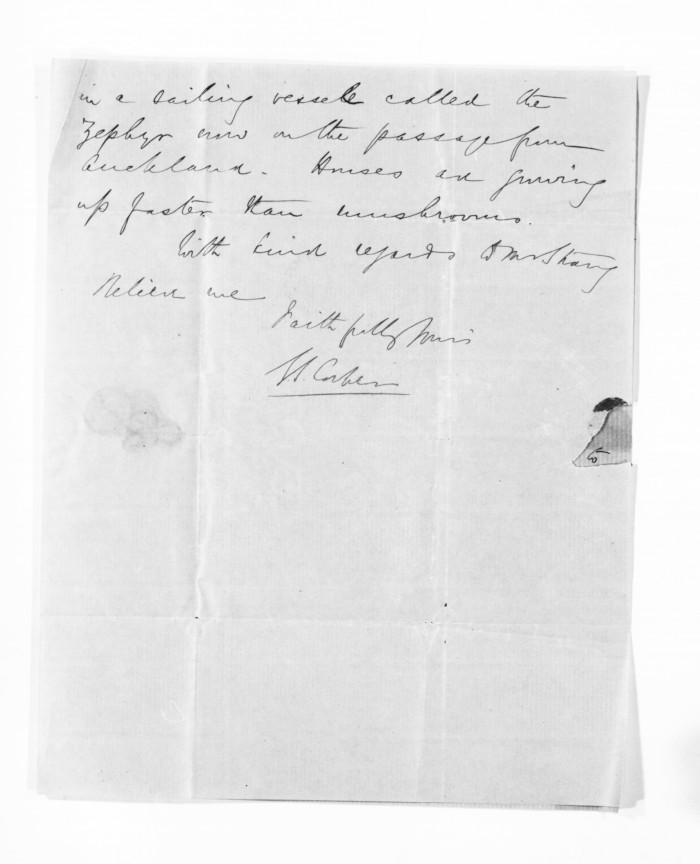 in a sailing vessel called the
Zephyr now on the passage from
Auckland. Houses are growing
up faster than mushrooms.
With kind regards
Believe me
Faithfully Yours
to